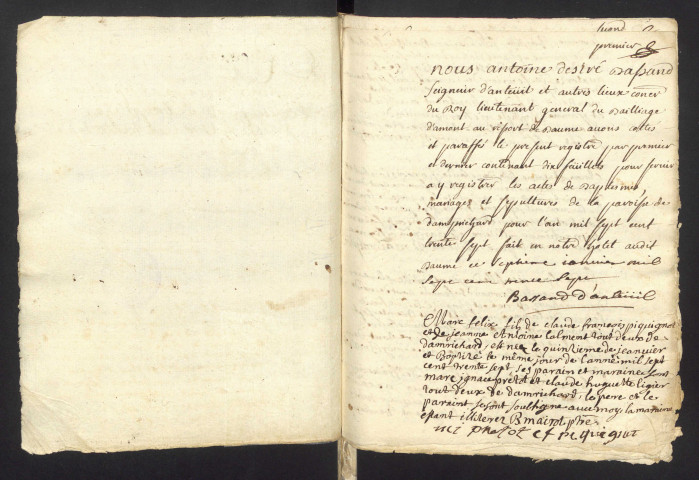 premier
nous antoine desiré Bassand
seigneur d'anteüil et autres lieux coner
du Roy lieutenant general du Bailliage
d'amont au resort de Baume avons cottés
et paraffés le present registre par premier
et dernier contenant dix feuilles pour servir
a y registrer les actes de Baptesmes,
mariages et sepultures de la paroisse de
damprichard pour l'an mil sept cent
trente sept fait en notre hotel audit
Baume ce septieme janvier mil
sept cent trente sept
Bassand d'anteüil
Marc felix fils de claude francois piquignot
et de jeanne Antoine tout deux de
damrichard, est nee le quinzieme de jeanvier
et Baptize le même jour de l'anné mil sept
cent trente sept ses parain et maraine sont
marc ignace prelot et claude huguette ligier
tout deux de damrichard, le pere et le
paraint se sont soussigne avec moy la maraine
estant illiteree B mairot ptre
m i prelot c f piquignot